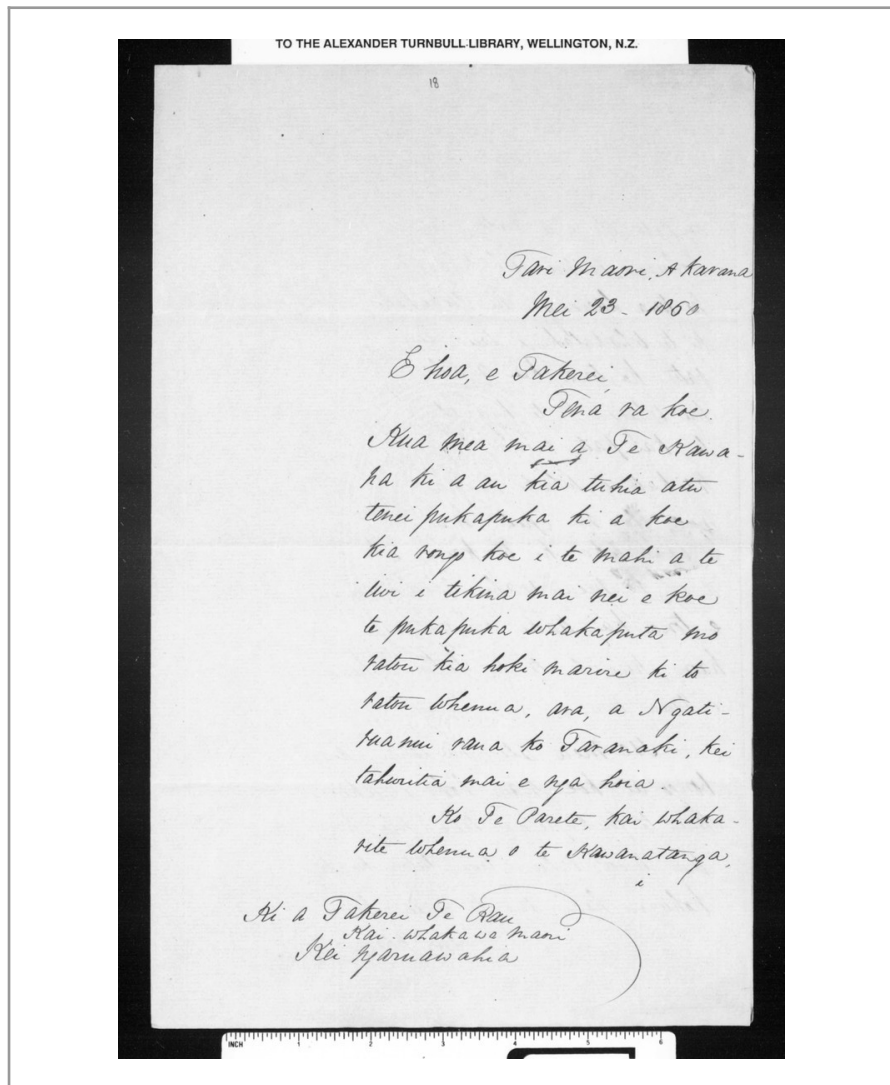 TO THE ALEXANDER TURNBULL LIBRARY, WELLINGTON, N.Z.
18
Tari Maori, Akarana
Mei 23 - 1860
E hoa, e Takerei,
Tena ra koe.
Kua mea mai a Te Kawa-
na ki a au kia tuhia atu
tenei pukapuka ki a koe
kia rongo koe i te mahi a te
iwi i tikina mai nei e koe
te pukapuka whakaputa mo
ratou kia hoki marire ki to
ratou whenua, ara, a Ngati-
ruanui raua ko Taranaki, kei
tahuritia mai e nga hoia.
Ko Te Parete, kai whaka-
rite whenua o te Kawanatanga,
i
Ki a Takerei Te Rau
Kai whakawa maori
Kei Ngaruawahia
INCH 1 2 3 4 5 6